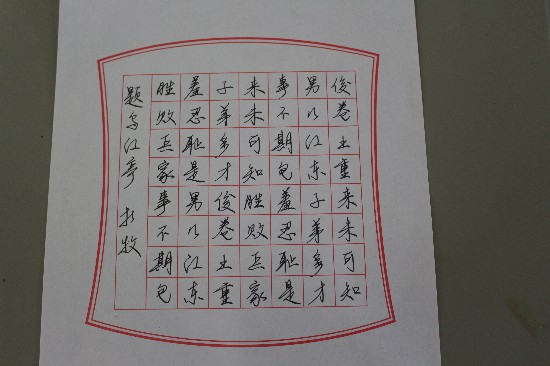 题乌江亭 杜牧
胜败兵家事不期包
羞忍耻是男儿江东
子弟多才俊卷土重
来未可知胜败兵家
事不期包羞忍耻是
男儿江东子弟多才
俊卷土重来未可知